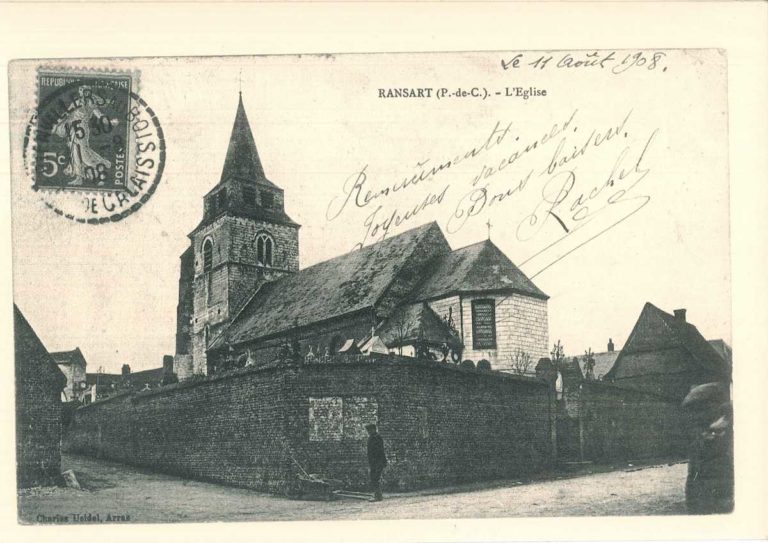 Le 11 Août 1908.
RANSART (P.-de-C.). - L'Eglise
REPUBLIQUE FRANÇAISE
5c
POSTES
15 30
08
BOIS
DE CALAIS
Remerciements.
Joyeuses vacances.
Doux baisers.
Rachel
Charles Ueidel, Arras